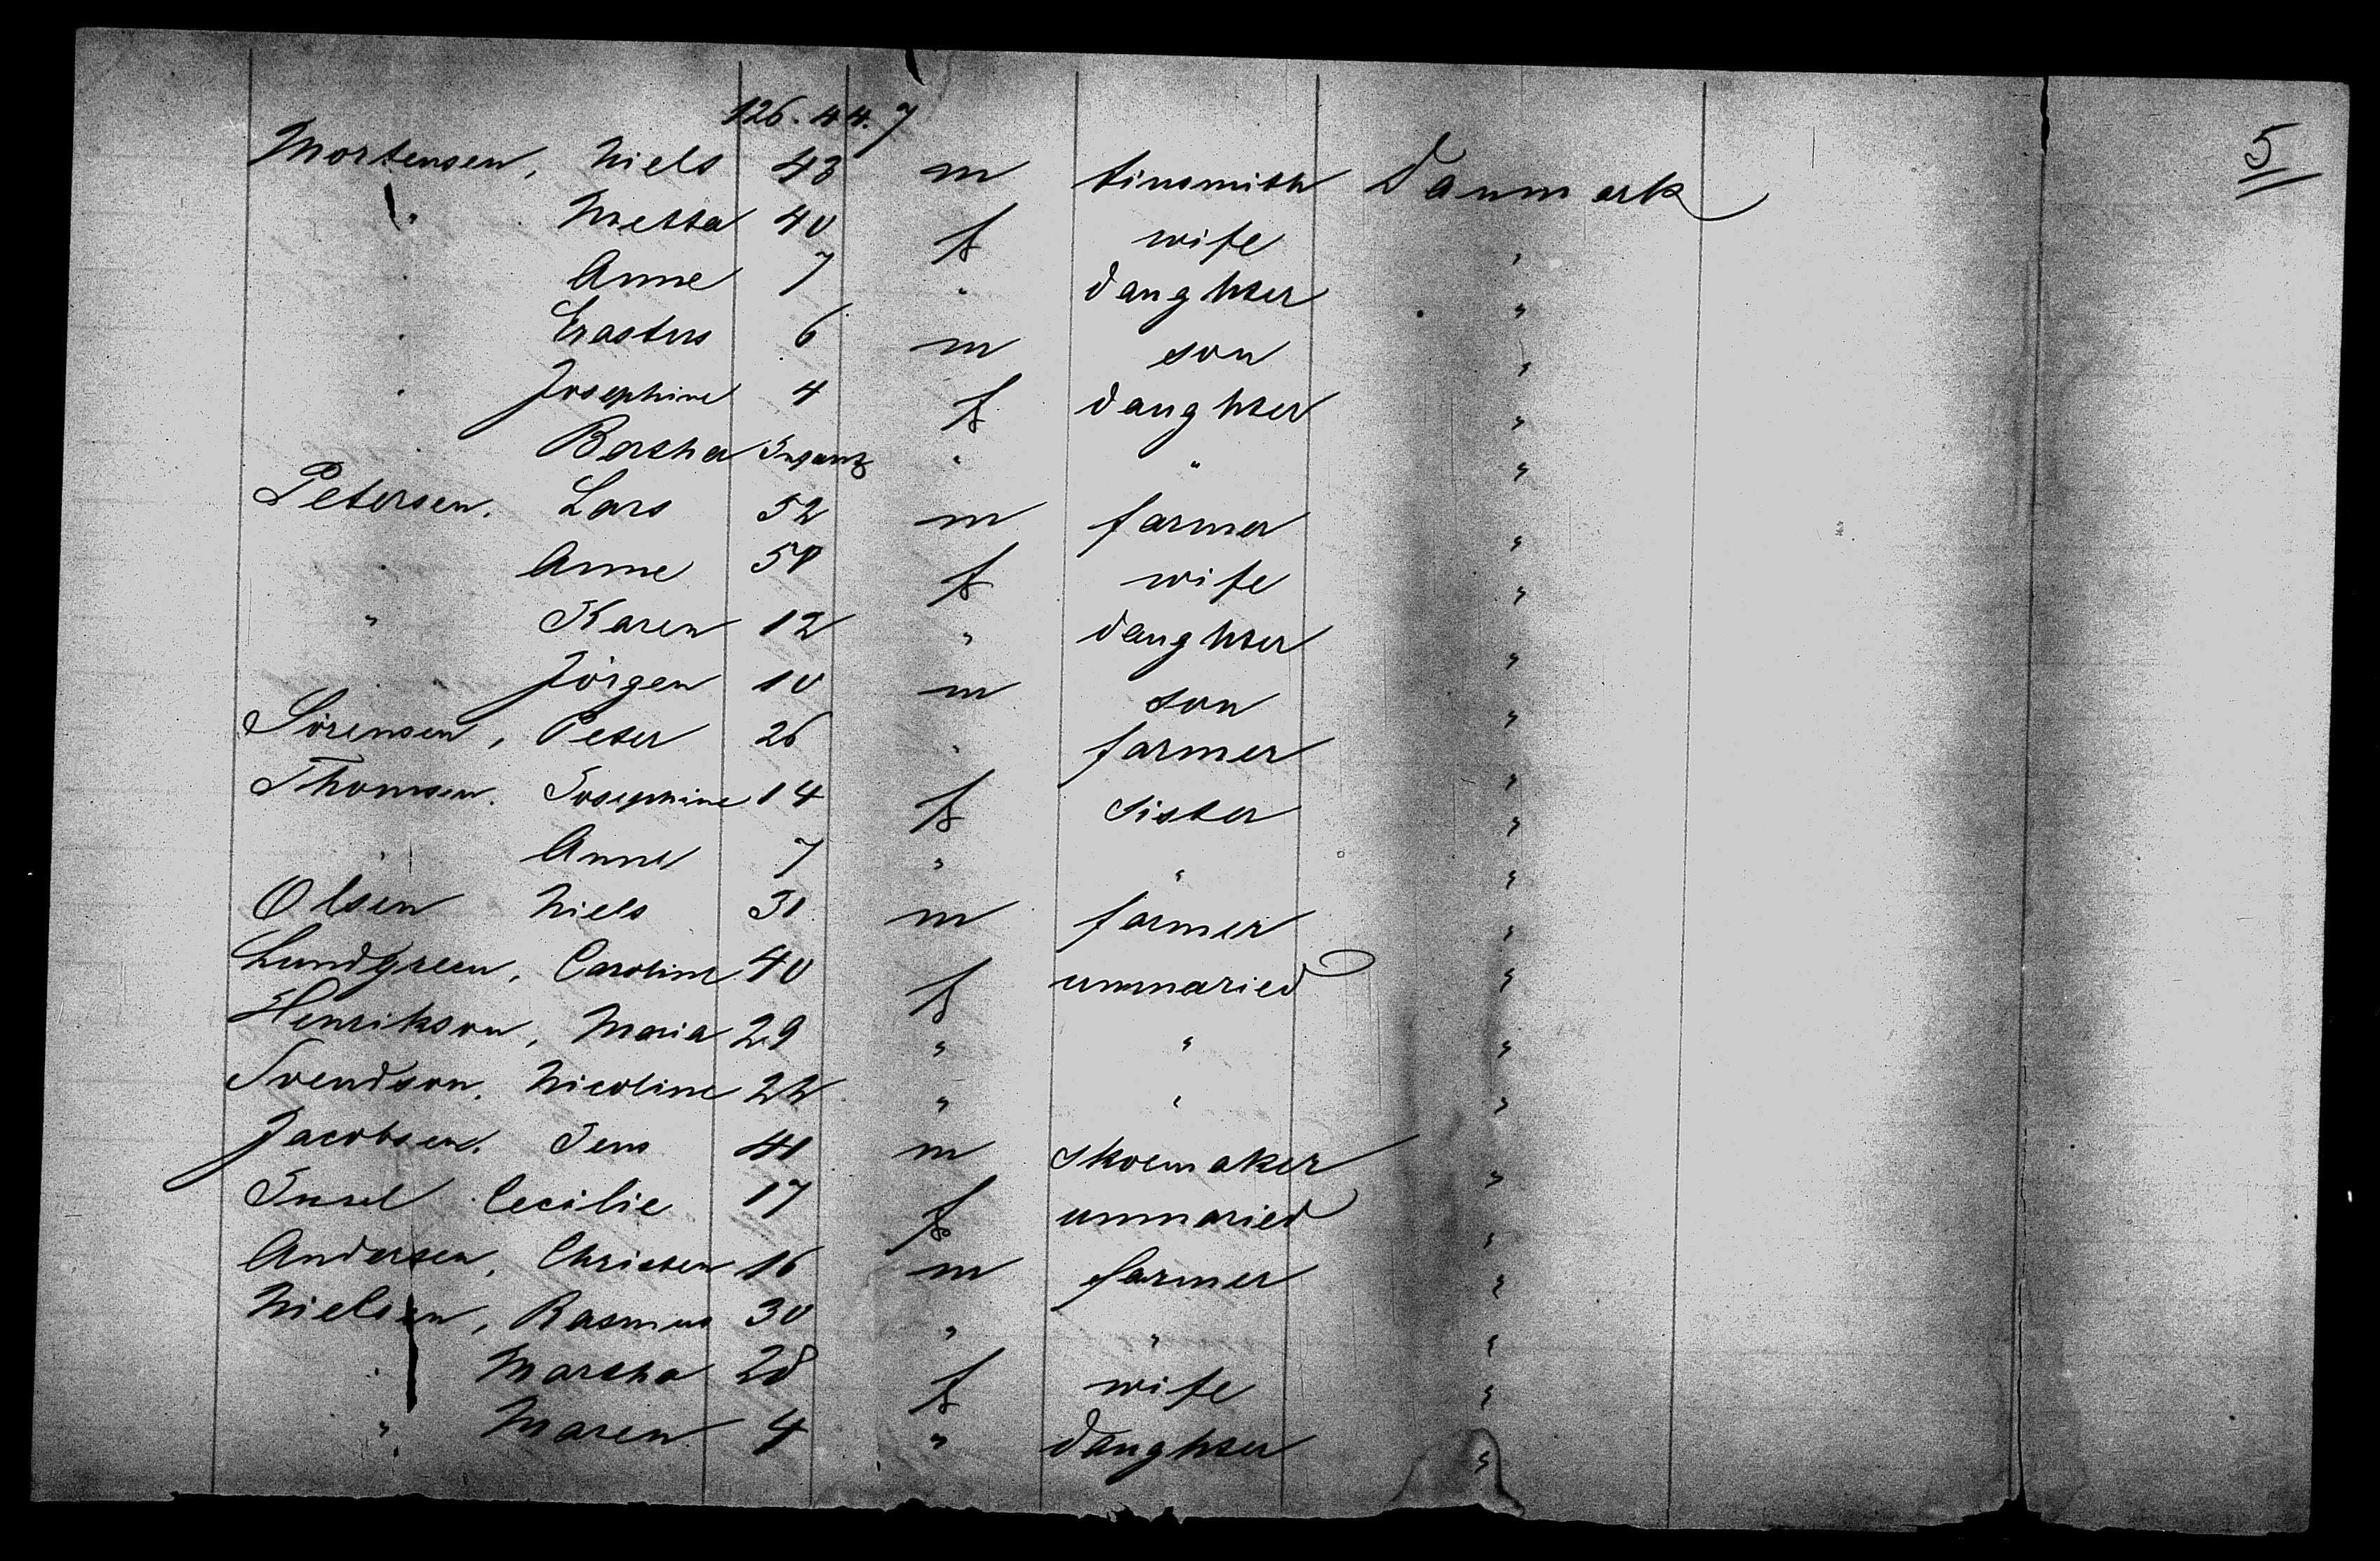 126. 44. 7
5
Mortensen, Niels 43 m tinsmith Danmark
" Metta 40 f wife "
" Anne 7 " daughter "
" Erastus 6 m son "
" Josephine 4 f daughter "
" Bertha Infant " " "
Petersen. Lars 52 m farmer "
" Anne 50 f wife "
" Karen 12 " daughter "
" Jörgen 10 m son "
Sörensen, Peter 26 " farmer "
Thomsen. Josephine 14 f sister "
" Anne 7 " " "
Olsen Niels 31 m farmer "
Lundgreen, Caroline 40 f unmaried "
Henrikson, Maria 29 " " "
Svendson, Nicoline 22 " " "
Jacobsen. Jens 41 m shoemaker "
Cecilie 17 f unmaried "
Andersen, Christen 16 m farmer "
Nielsen, Rasmus 30 " " "
" Martha 28 f wife "
" Maren 4 " daughter "